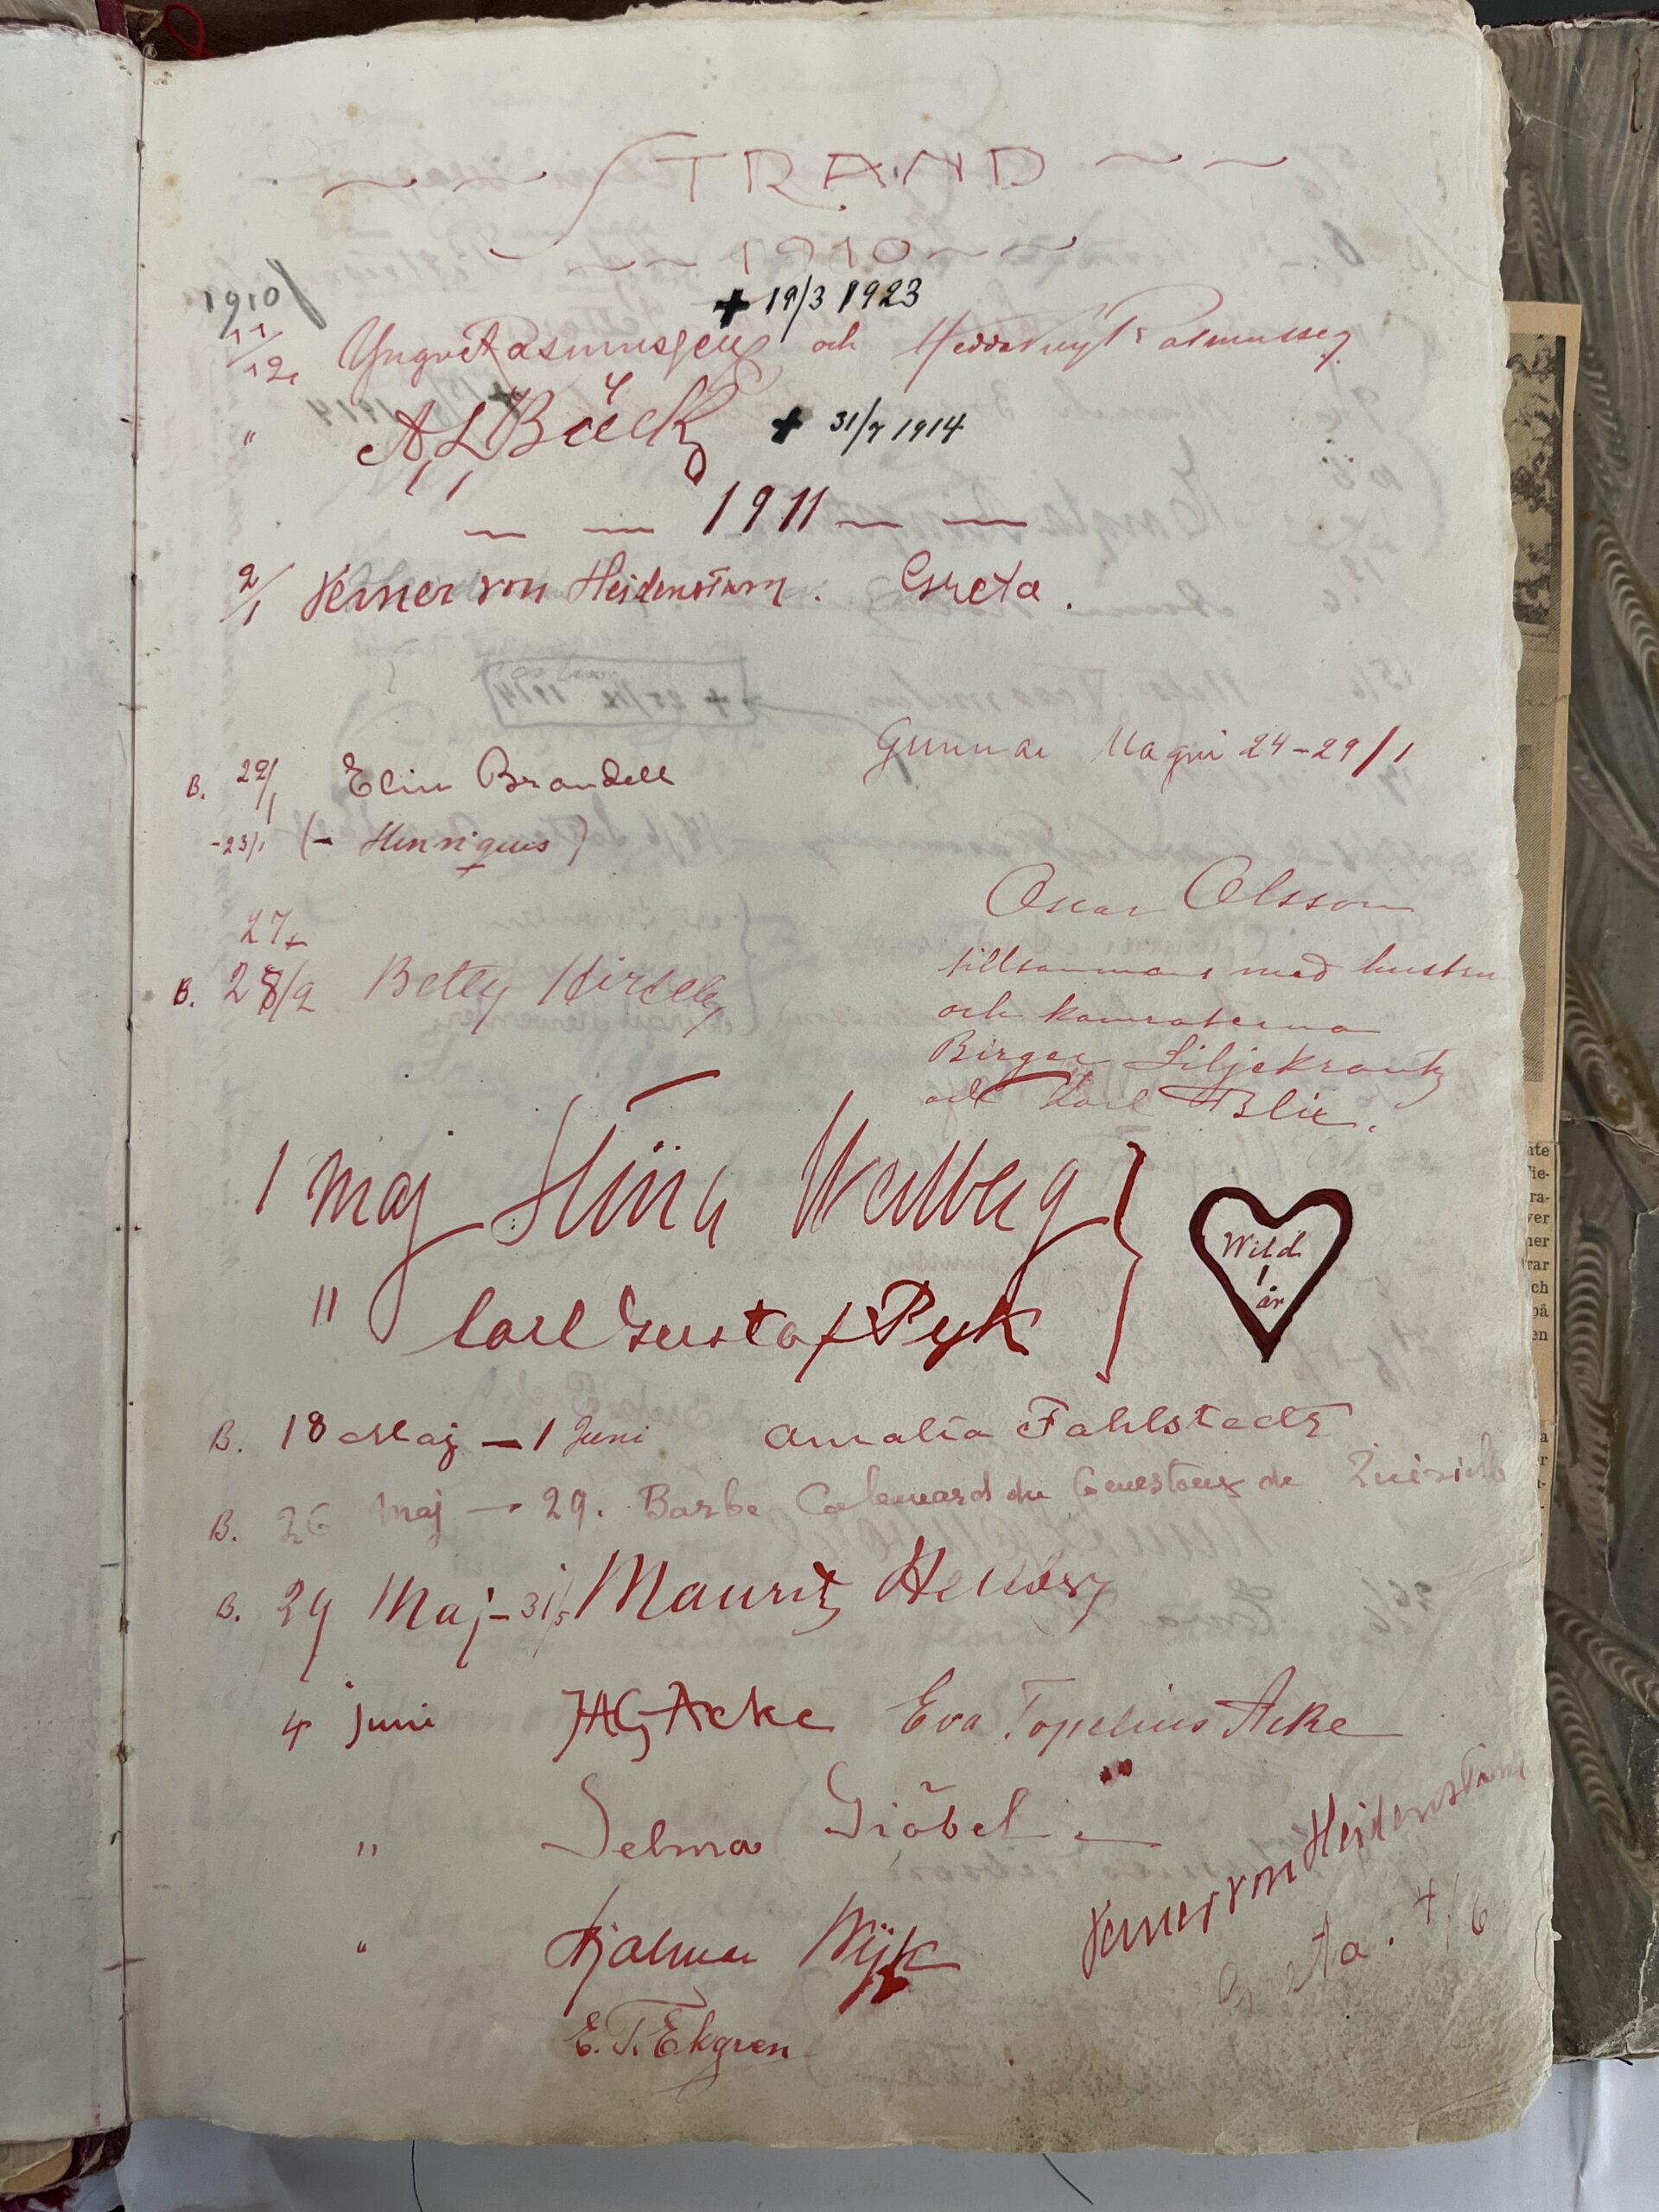 STRAND
1910
1910
+ 19/3 1923
11/12 Yngve Rasmussen och Hedda Rasmussen
" A. L. Bäck + 31/7 1914
1911
2/1 Verner von Heidenstam. Greta.
Gunnar 24-29/1
B. 22/1 Elin Brandell
-23/1 (- Henriques)
Oscar Olsson
tillsammans med hustru
och kamraterna
Birger Liljekrantz
och Karl
27-
B. 28/2 Betty Hirsch
1 Maj Stina
" Carl Gustaf Pyk
Wild
1
år
B. 18 Maj - 1 Juni Amalia Fahlstedt
B. 26 Maj - 29. Barbe du Genestoux de
B. 29 Maj - 31/5 Mauritz
4 juni JAG Acke Eva Topelius Acke
" Selma Giöbel
" Hjalmar Wijk
Verner von Heidenstam
Greta. 4/6
E. T. Ekgren